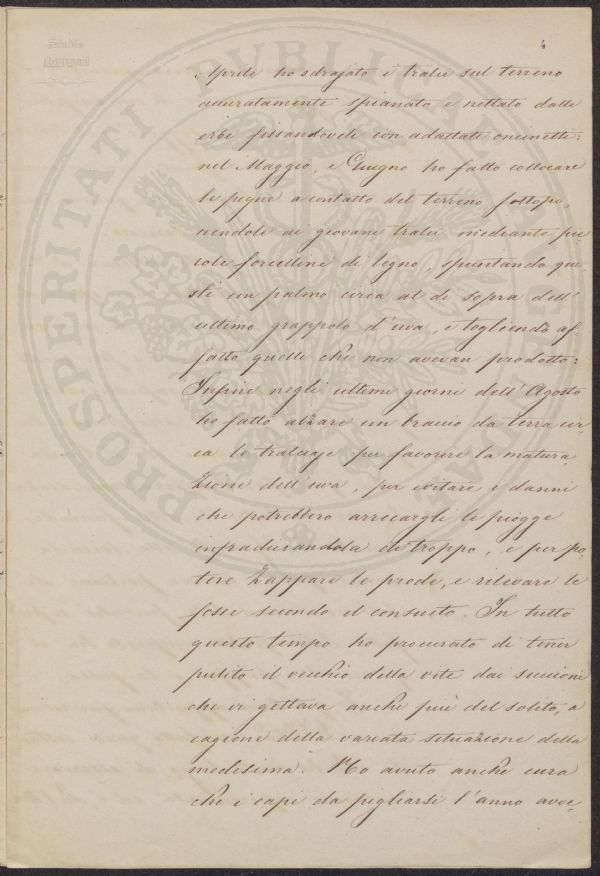 4
Aprile ho sdrajato i tralci sul terreno
accuratamente spianato e nettato dalle
erbe fissandoveli con adattati oncinetti:
nel Maggio, e Giugno ho fatto collocare
le pigne a contatto del terreno sottopo-
nendole ai giovani tralci mediante pic-
cole forcelline di legno, spuntando que-
sti un palmo circa al di sopra dell'
ultimo grappolo d'uva, e togliendo af-
fatto quelli che non avevan prodotto:
Infine negli ultimi giorni dell'Agosto
ho fatto alzare un braccio da terra cir-
ca le tralciaje per favorire la matura-
zione dell'uva, per evitare i danni
che potrebbero arrecargli le piogge
infradiciandola di troppo, e per po-
tere zappare le prode, e rilevare le
fosse secondo il consueto. In tutto
questo tempo ho procurato di tener
pulito il vecchio della vite dai succioni
che vi gettava anche più del solito, a
cagione della variata situazione della
medesima. Ho avuto anche cura
che i capi da pigliarsi l'anno avve-
PROSPERITATI PUBLICAE